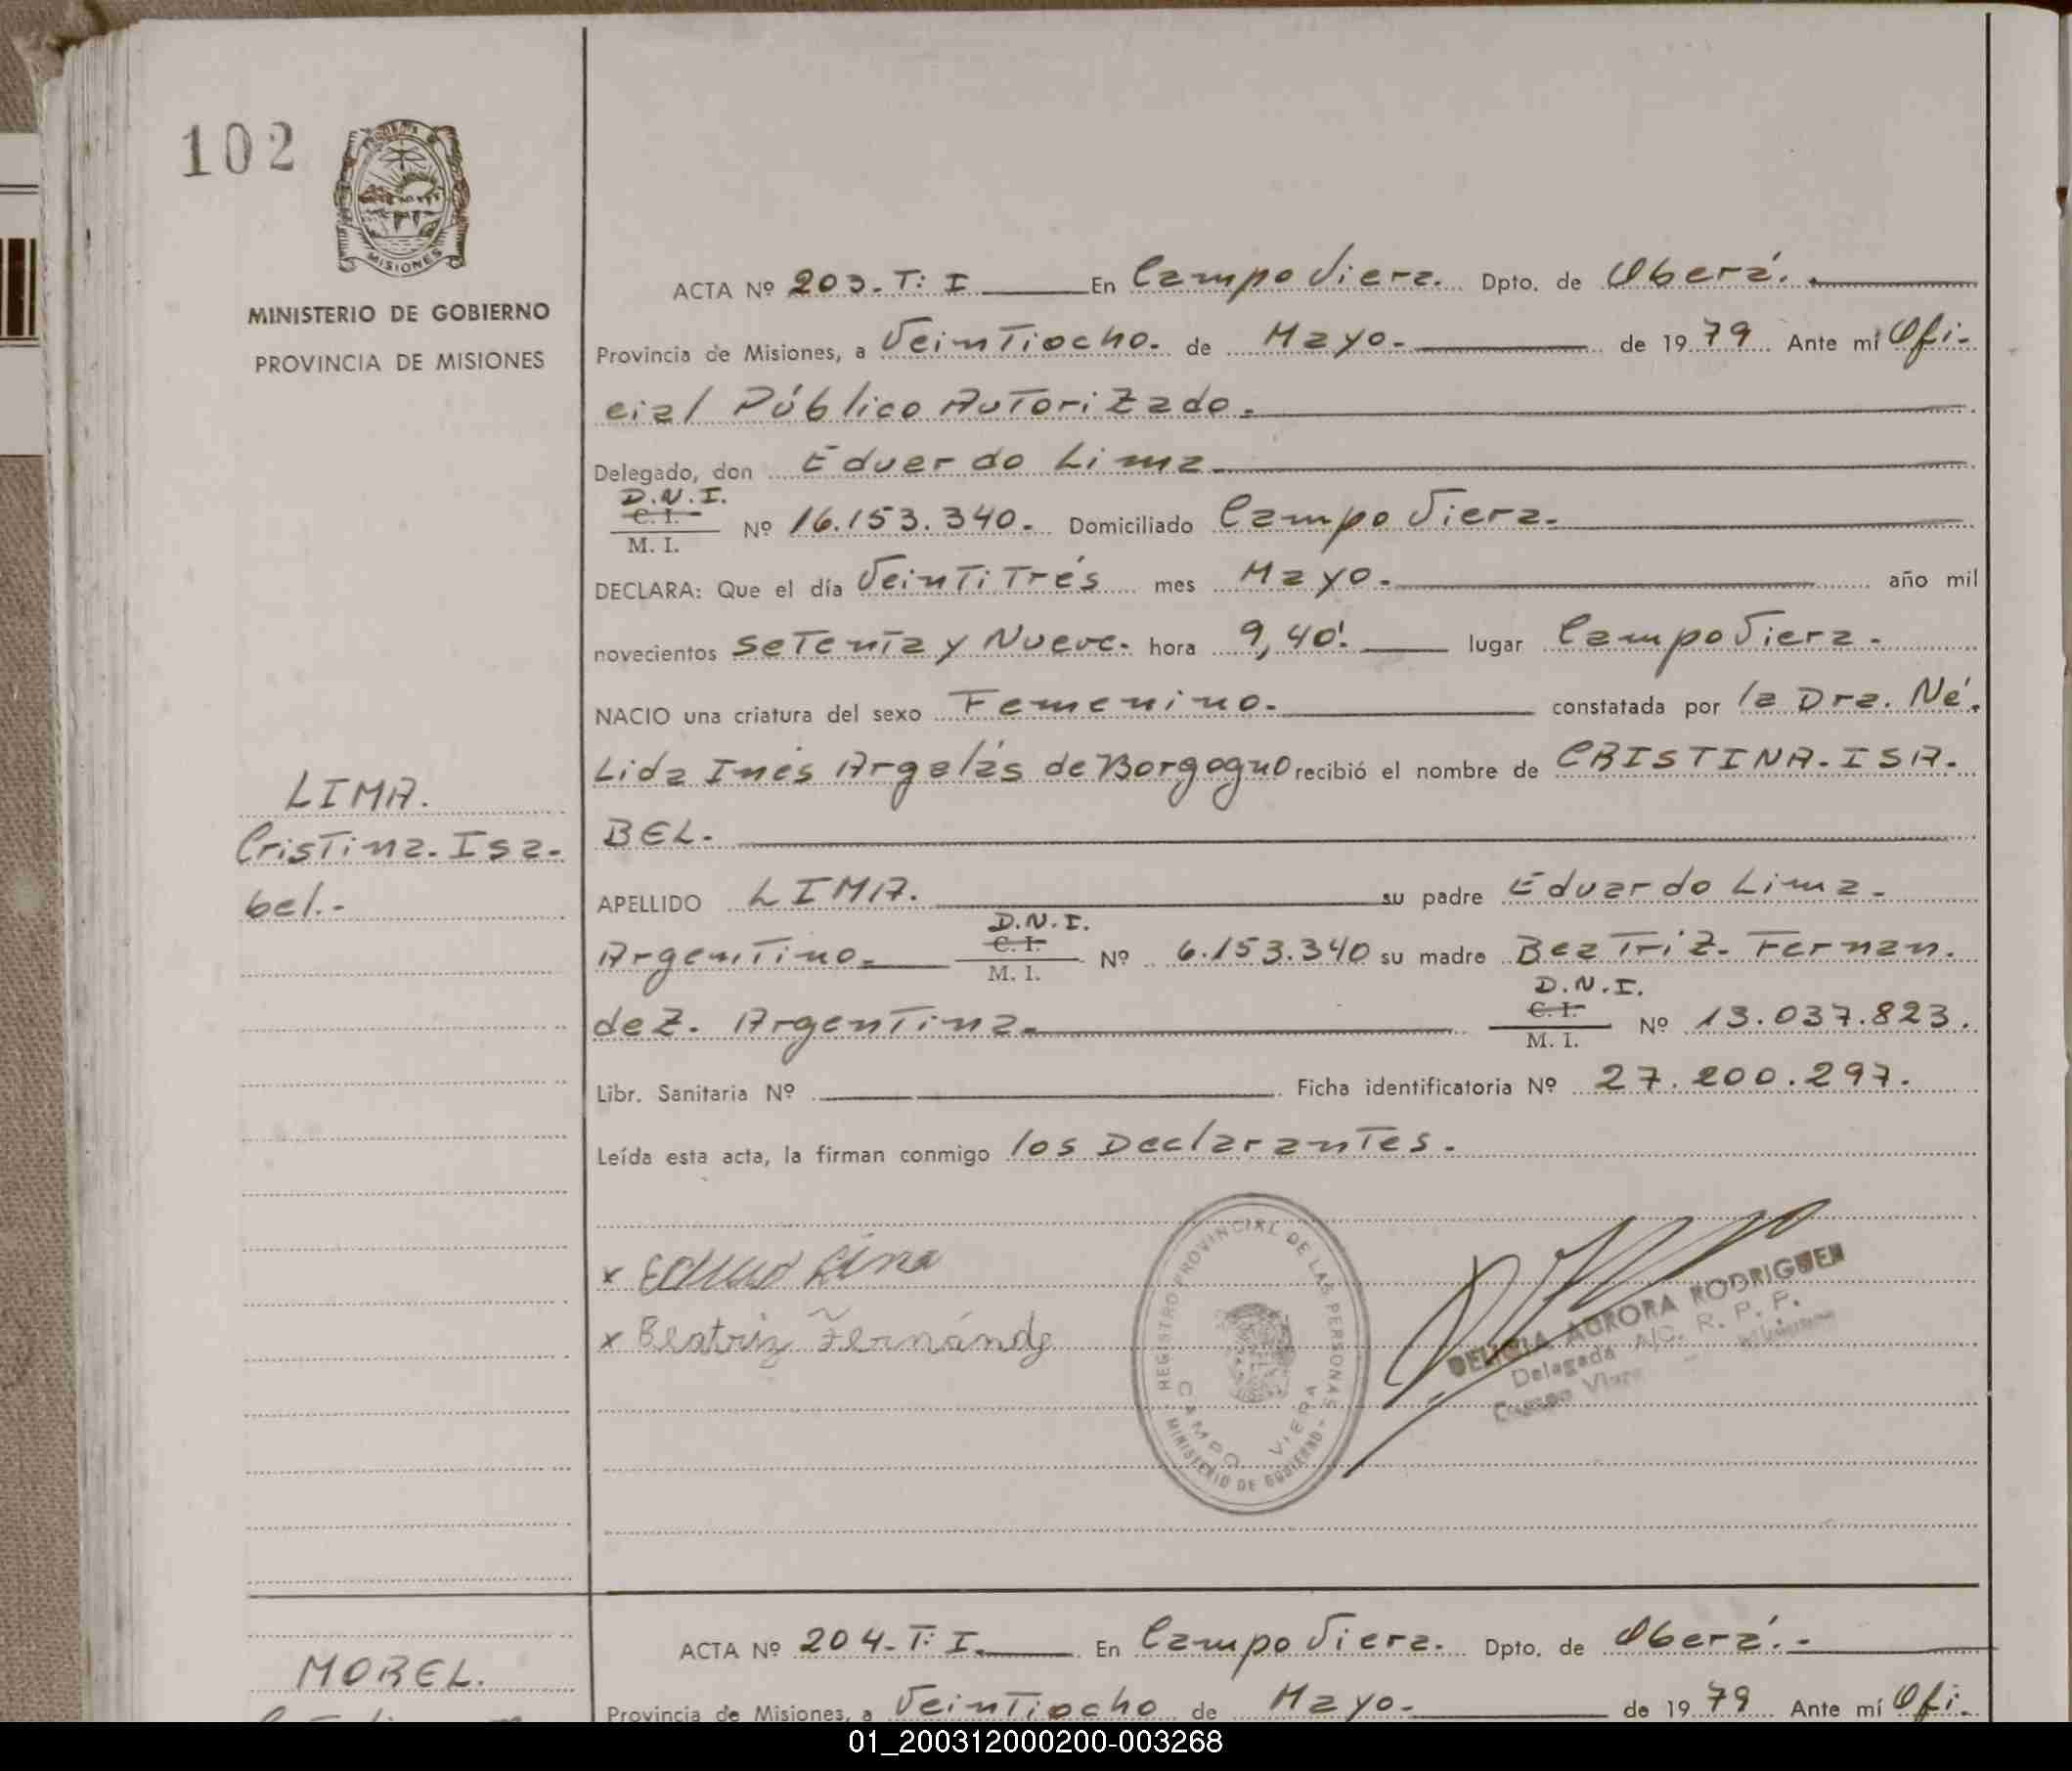 102
MISIONES
MINISTERIO DE GOBIERNO
PROVINCIA DE MISIONES
ACTA Nº 203.T: I En Campo Viera. Dpto. de Oberá.
Provincia de Misiones, a VeinTiocho. de Mayo. de 1979 Ante mí Ofi-
cial Público AuTorizado.
Delegado, don Eduardo Lima
D.N.I.
C. I.
M. I.
Nº 16.153.340. Domiciliado Campo Viera.
DECLARA: Que el día VeinTiTrés mes Mayo. año mil
novecientos seTenTa y Nueve. hora 9,40'. lugar Campo Viera.
NACIO una criatura del sexo Femenino. constatada por la Dra. Né.
Lida Inés Argelás de Borgogno recibió el nombre de CRISTINA-ISA-
BEL.
LIMA.
CrisTina-Isa-
bel.-
APELLIDO LIMA. su padre Eduardo Lima.
D.N.I.
ArgenTino. C. I. M. I. Nº 6.153.340 su madre BeaTriz. Fernan.
D.N.I.
dez. ArgenTina. C. I. M. I. Nº 13.037.823.
Libr. Sanitaria Nº Ficha identificatoria Nº 27.200.297.
Leída esta acta, la firman conmigo los DeclaranTes.
x Eduard Lima
x Beatriz Fernández
REGISTRO PROVINCIAL DE LAS PERSONAS
CAMPO VIERA
MINISTERIO DE GOBIERNO
DELICIA AURORA RODRIGUEZ
Delegada A/C. R. P. P.
Campo Viera
ACTA Nº 204.T: I. En Campo Viera. Dpto. de Oberá.-
MOREL.
Provincia de Misiones, a VeinTiocho de Mayo. de 1979 Ante mí Ofi-
01_200312000200-003268